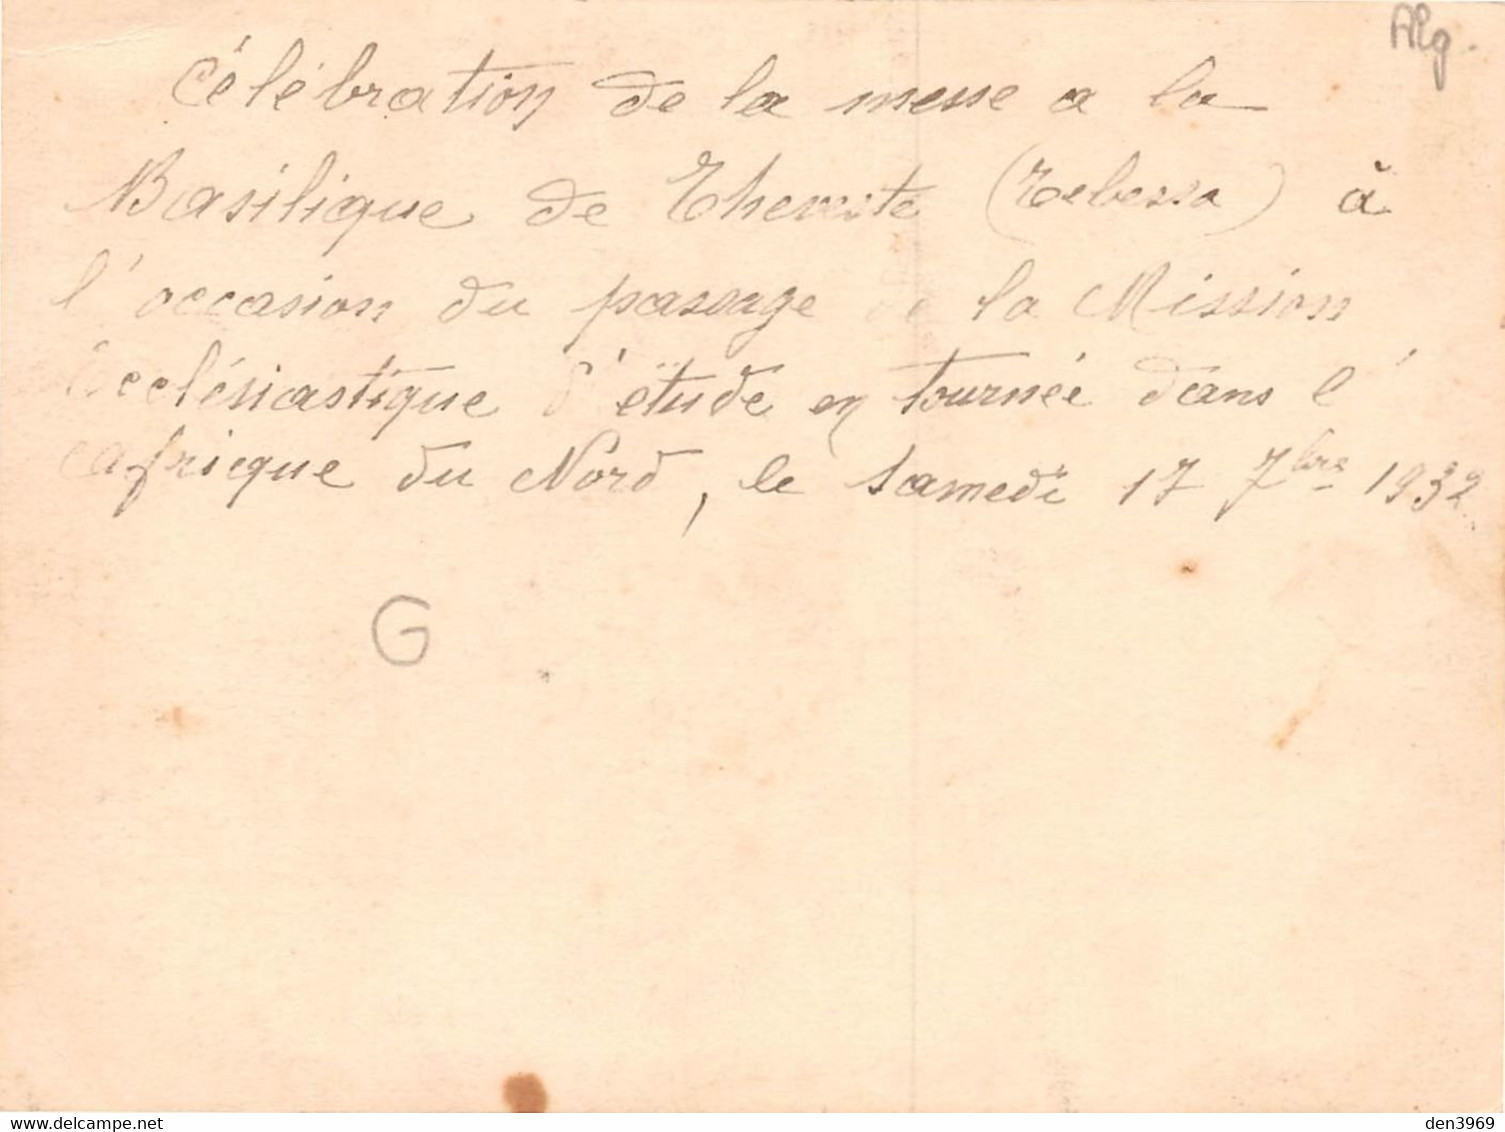 Alg.
Célébration de la messe a la
Basilique de Theveste (Tebessa) à
l'occasion du passage de la Mission
Ecclésiastique d'étude en tournée dans l'
Afrique du Nord, le samedi 17 7bre 1932.
G
www.delcampe.net
den3969